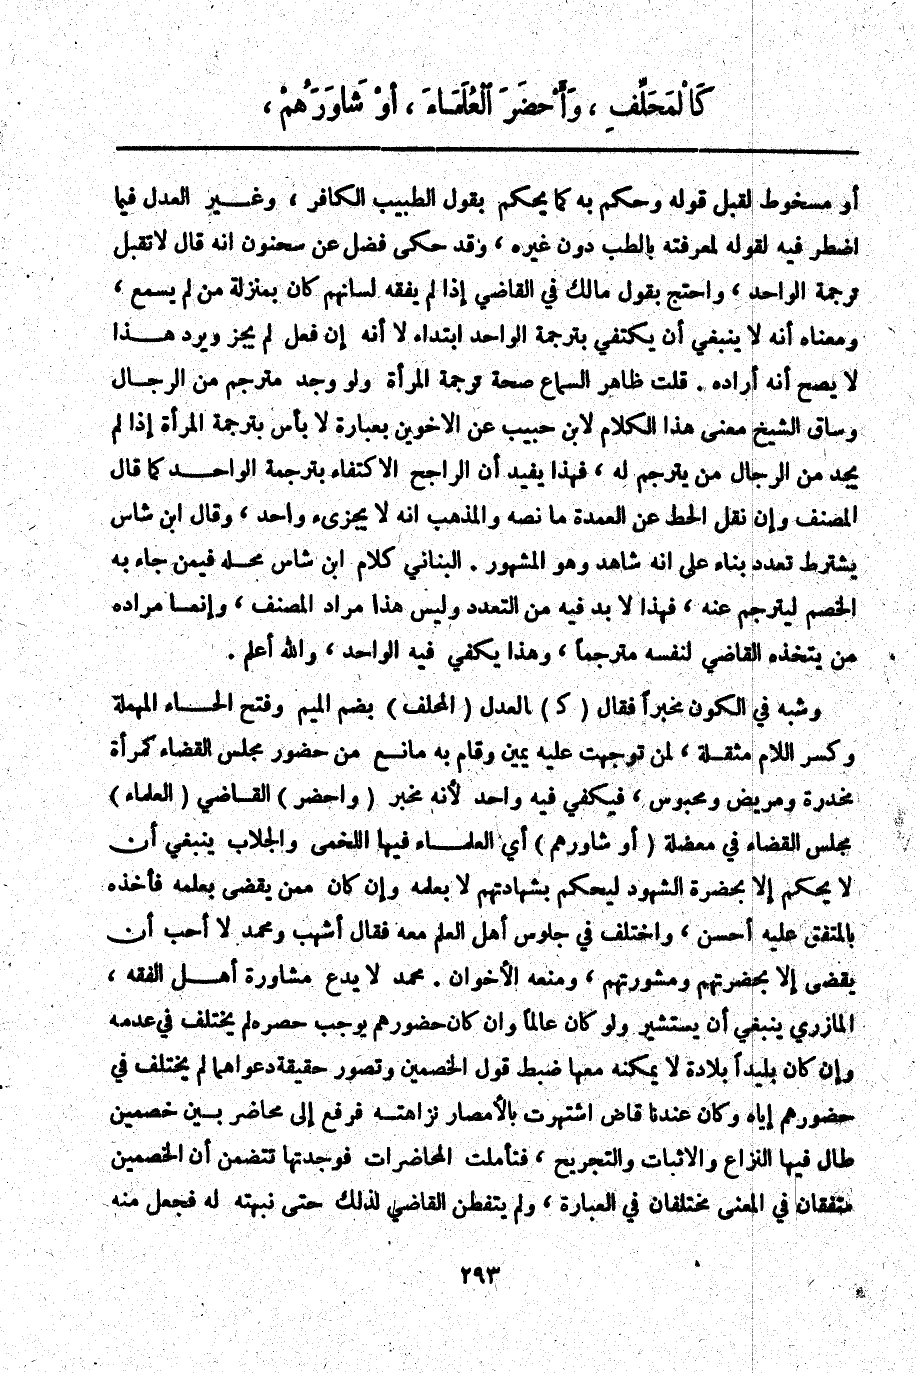 كَالْمُحَلِّفِ ، وَأَحْضَرَ الْعُلَمَاءَ ، أَوْ شَاوَرَهُمْ ،
أو مسخوط لقبل قوله وحكم به كما يحكم بقول الطبيب الكافر ، وغـــير العدل فيما
اضطر فيه لقوله لمعرفته بالطب دون غيره ، وقد حكى فضل عن سحنون انه قال لاتقبل
ترجمة الواحد ، واحتج بقول مالك في القاضي إذا لم يفقه لسانهم كان بمنزلة من لم يسمع ،
ومعناه أنه لا ينبغي أن يكتفي بترجمة الواحد ابتداء لا أنه إن فعل لم يجز ويرد هـــذا
لا يصح أنه أراده . قلت ظاهر السماع صحة ترجمة المرأة ولو وجد مترجم من الرجـال
وساق الشيخ معنى هذا الكلام لابن حبيب عن الاخوين بعبارة لا بأس بترجمة المرأة إذا لم
يجد من الرجال من يترجم له ، فهذا يفيد أن الراجح الاكتفاء بترجمة الواحـــد كما قال
المصنف وإن نقل الحط عن العمدة ما نصه والمذهب انه لا يجزىء واحد ، وقال ابن شاس
يشترط تعدد بناء على انه شاهد وهو المشهور . البناني كلام ابن شاس محـله فيمن جاء به
الخصم ليترجم عنه ، فهذا لا بد فيه من التعدد وليس هذا مراد المصنف ، وإنمـا مراده
من يتخذه القاضي لنفسه مترجماً ، وهذا يكفي فيه الواحد ، والله أعلم .
وشبه في الكون مخبراً فقال ( كـ ) ـالعدل ( المحلف ) بضم الميم وفتح الحـــاء المهملة
وكسر اللام مثقـلة ، لمن توجهت عليه يمين وقام به مانـــع من حضور مجلس القضاء كمرأة
مخدرة ومريض ومحبوس ، فيكفي فيه واحد لأنه مخبر ( واحضر ) القـاضي ( العلماء )
مجلس القضاء في معضلة ( أو شاورهم ) أي العلمـــاء فيها اللخمى والجلاب ينبغي أن
لا يحكم إلا بحضرة الشهود ليحكم بشهادتهم لا بعلمه وإن كان ممن يقضى بعلمه فأخذه
بالمتفق عليه أحسن ، واختلف في جلوس أهل العلم معه فقال أشهب ومحمد لا أحب أن
يقضى إلا بحضرتهم ومشورتهم ، ومنعه الأخوان . محمد لا يدع مشاورة أهـــل الفقه ،
المازري ينبغي أن يستشير ولو كان عالماً وان كان حضورهم يوجب حصره لم يختلف في عدمه
وإن كان بليداً بلادة لا يمكنه معها ضبط قول الخصمين وتصور حقيقة دعواهما لم يختلف في
حضورهم إياه وكان عندنا قاض اشتهرت بالأمصار نزاهتـــه فرفع إلى محاضر بــين خصمين
طال فيها النزاع والاثبات والتجريح ، فتأملت المحاضرات فوجدتها تتضمن أن الخصمين
متفقان في المعنى مختلفان في العبارة ، ولم يتفطن القاضي لذلك حتى نبهته له فجعل منه
٢٩٣